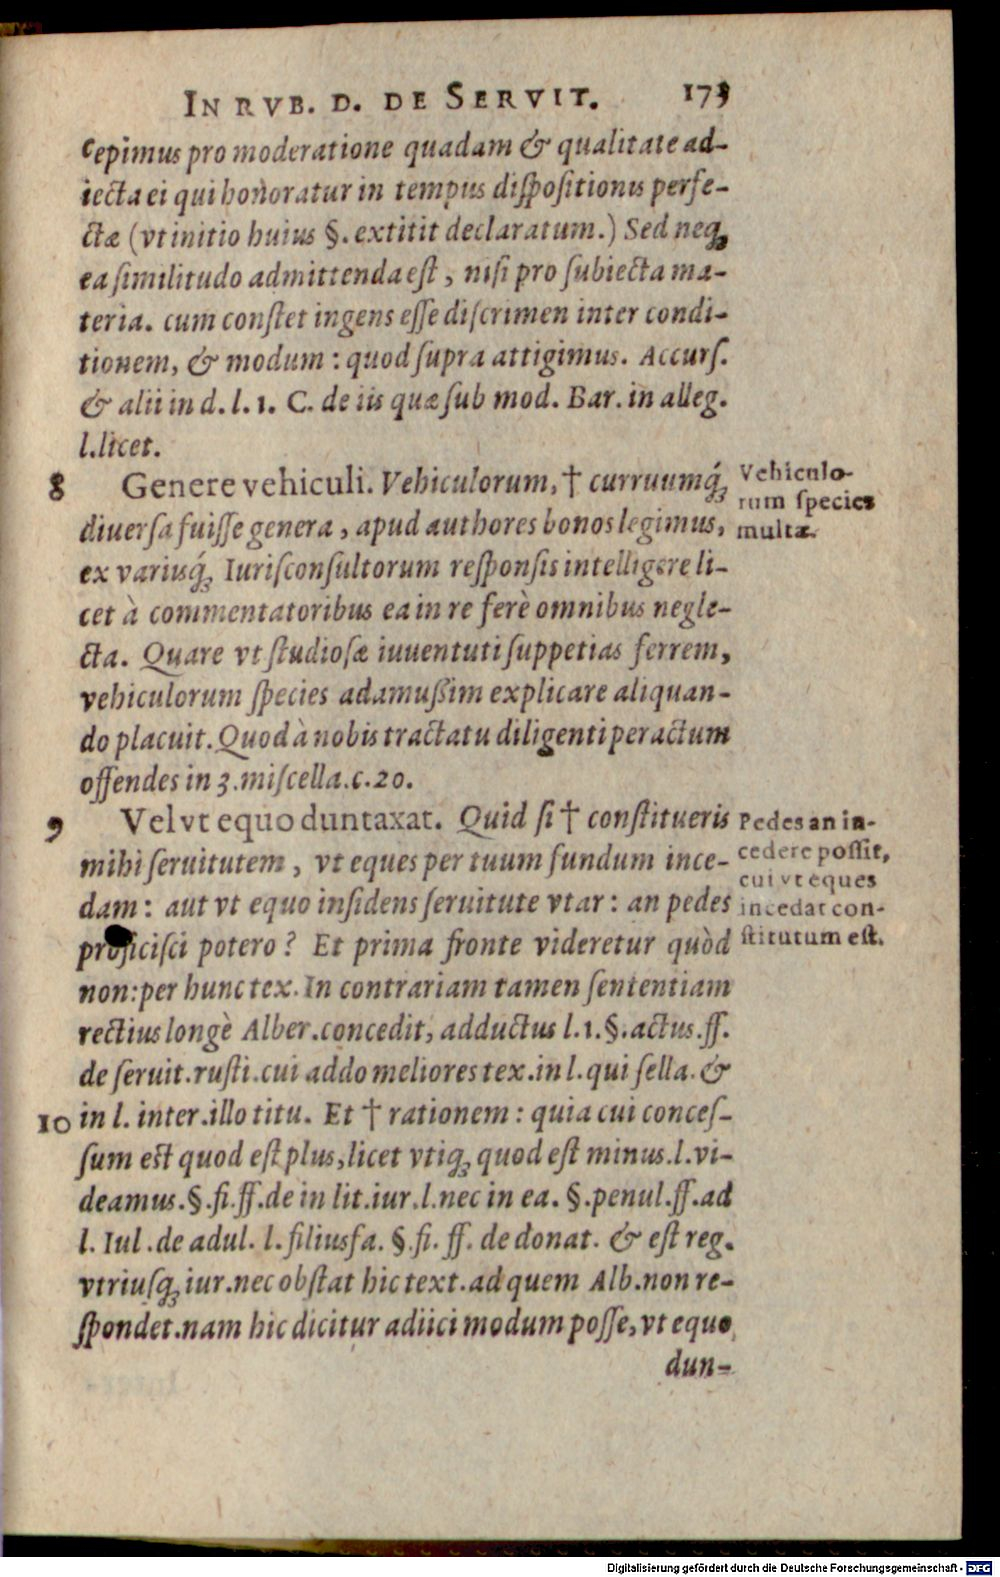 IN RVB. D. DE SERVIT. 173
cepimus pro moderatione quadam & qualitate ad-
iecta ei qui honoratur in tempus dispositionis perfe-
ctæ (vt initio huius §. extitit declaratum.) Sed neq;
ea similitudo admittenda est, nisi pro subiecta ma-
teria. cum constet ingens esse discrimen inter condi-
tionem, & modum: quod supra attigimus. Accurs.
& alii in d. l. 1. C. de iis quæ sub mod. Bar. in alleg.
l. licet.
8 Genere vehiculi. Vehiculorum, † curruumq́;
Vehiculo-
rum species
multæ.
diuersa fuisse genera, apud authores bonos legimus,
ex variisq́; Iurisconsultorum responsis intelligere li-
cet à commentatoribus ea in re ferè omnibus negle-
cta. Quare vt studiosæ iuuentuti suppetias ferrem,
vehiculorum species adamußim explicare aliquan-
do placuit. Quod à nobis tractatu diligenti peractum
offendes in 3. miscella. c. 20.
9 Vel vt equo duntaxat. Quid si † constitueris
Pedes an in-
cedere possit,
cui vt eques
incedat con-
stitutum est.
mihi seruitutem, vt eques per tuum fundum ince-
dam: aut vt equo insidens seruitute vtar: an pedes
proficisci potero? Et prima fronte videretur quòd
non: per hunc tex. In contrariam tamen sententiam
rectius longè Alber. concedit, adductus l. 1. §. actus. ff.
de seruit. rusti. cui addo meliores tex. in l. qui sella. &
10 in l. inter. illo titu. Et † rationem: quia cui conces-
sum est quod est plus, licet vtiq; quod est minus. l. vi-
deamus. §. fi. ff. de in lit. iur. l. nec in ea. §. penul. ff. ad
l. Iul. de adul. l. filiusfa. §. fi. ff. de donat. & est reg.
vtriusq; iur. nec obstat hic text. ad quem Alb. non re-
spondet. nam hic dicitur adiici modum posse, vt equo
dun-
Digitalisierung gefördert durch die Deutsche Forschungsgemeinschaft - DFG